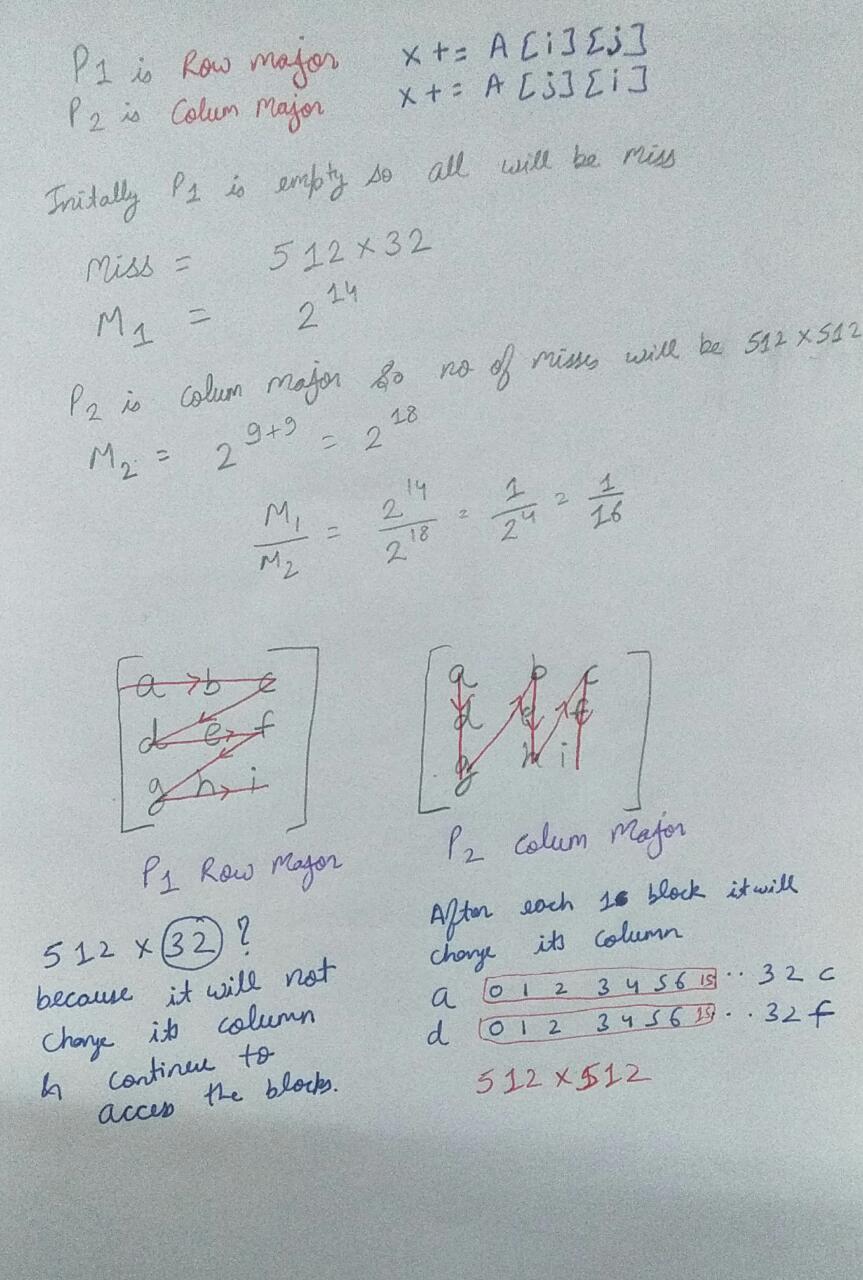 P1 is Row major x += A[i][j]
P2 is Colum Major x += A[j][i]
Initally P1 is empty so all will be miss
Miss = 512 × 32
M1 = 2^14
P2 is colum major so no of misses will be 512 × 512
M2 = 2^9+9 = 2^18
M1/M2 = 2^14/2^18 = 1/2^4 = 1/16
a b c
d e f
g h i
P1 Row Major
a b c
d e f
g h i
P2 colum Major
512 × 32 ?
because it will not
change its column
& continue to
acces the blocks.
After each 16 block it will
change its column
a 0 1 2 3 4 5 6 15 .. 32 c
d 0 1 2 3 4 5 6 15 .. 32 f
512 × 512